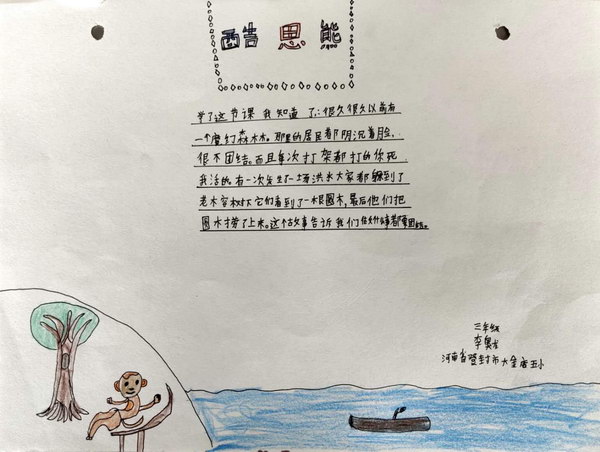 酷思熊
学了这节课我知道了:很久很久以前有
一个魔幻森林。那里的居民都阴沉着脸,
很不团结。而且每次打架都打的你死
我活的。有一次发生了一场洪水大家都躲到了
老木容树下它们看到了一根圆木,最后他们把
圆木捞了上来。这个故事告诉我们任何事都要团结。
三年级
李奥龙
河南省登封市大金店五小